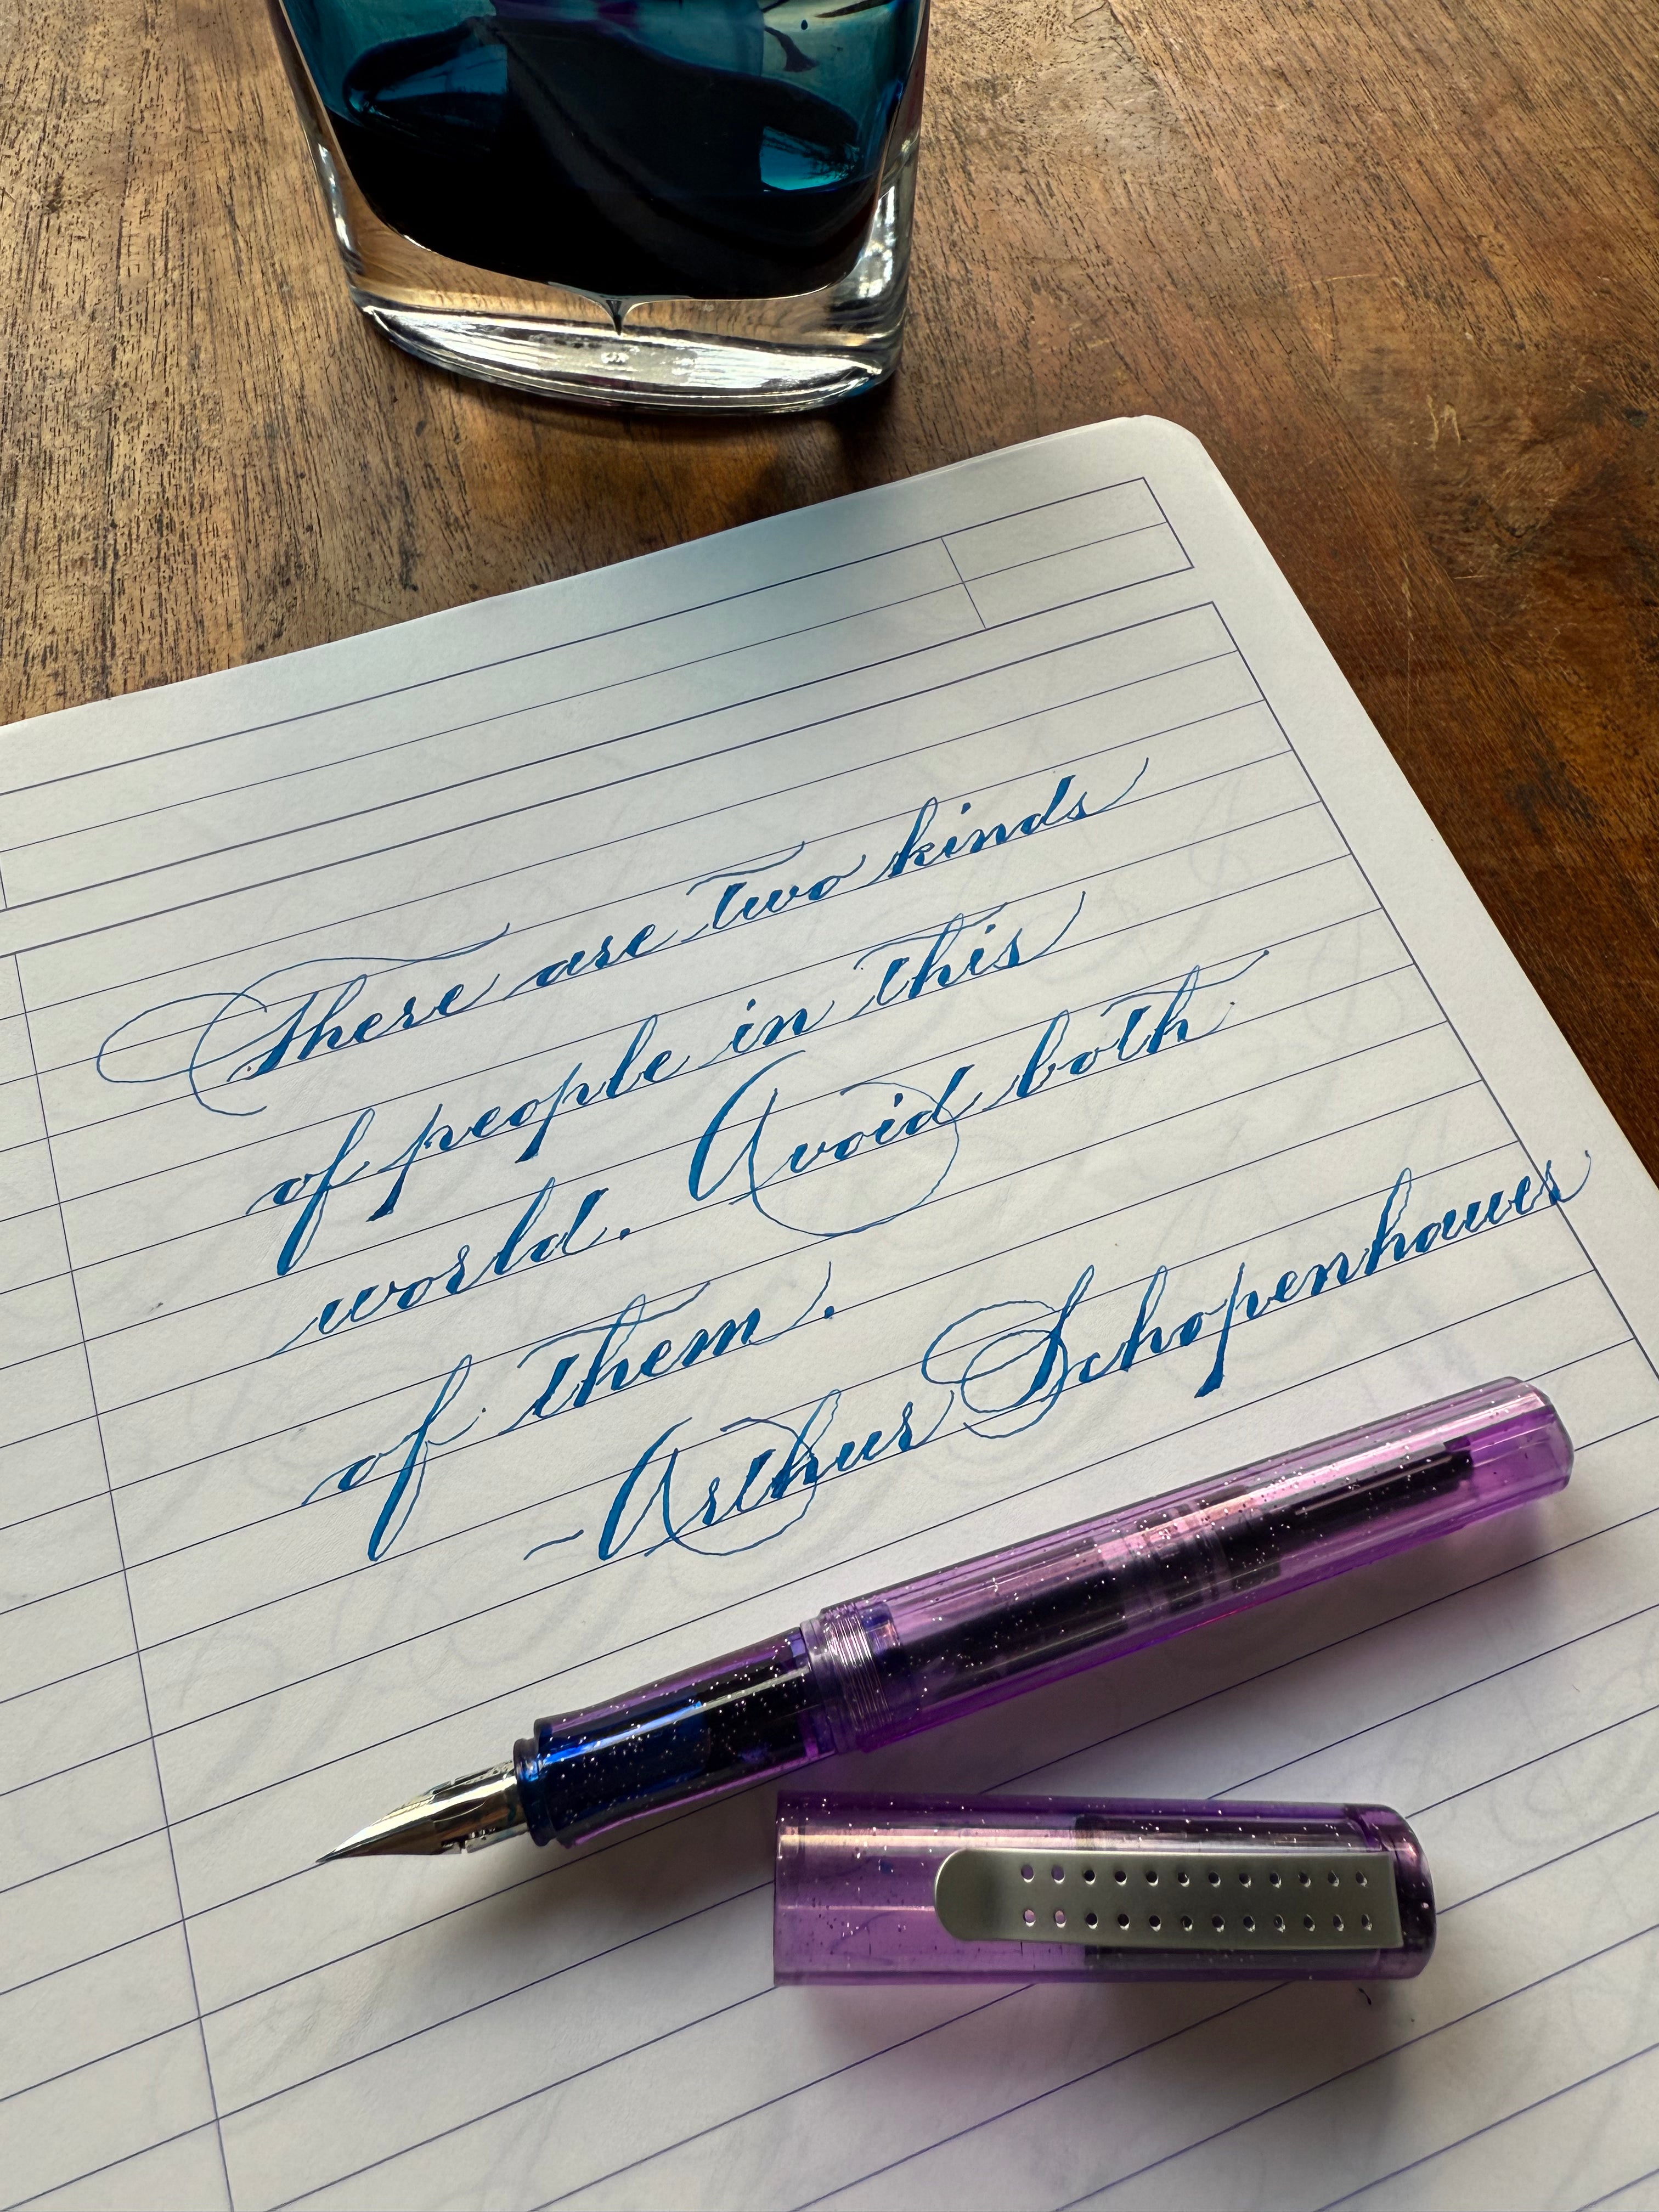 There are two kinds
of people in this
world. Avoid both
of them.
~Arthur Schopenhauer